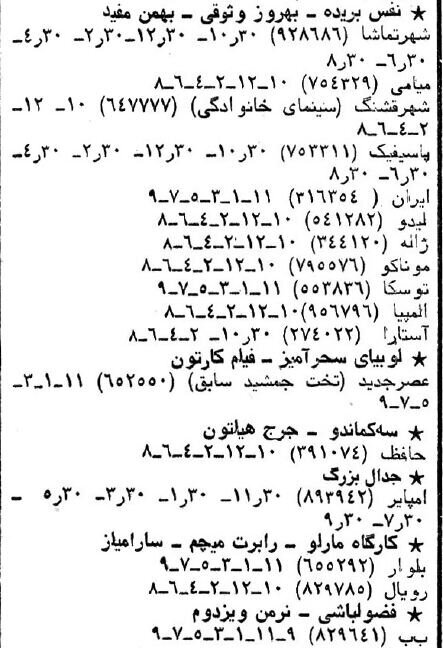 ★ نفس بریده ـ بهروز وثوقی ـ بهمن مفید
شهرتماشا (۹۲۸۶۸۶) ۱۰٫۳۰ـ ۱۲٫۳۰ـ ۲٫۳۰ـ ۴٫۳۰ـ
۶٫۳۰ـ ۸٫۳۰
میامی (۷۵٤۳۲۹) ۱۰ـ۱۲ـ۲ـ٤ـ٦ـ۸
شهرقشنگ (سینمای خانوادگی) (٦٤۷۷۷۷) ۱۰ـ ۱۲ـ
۲ـ٤ـ٦ـ۸
پاسیفیک (۷۵۳۳۱۱) ۱۰٫۳۰ـ ۱۲٫۳۰ـ ۲٫۳۰ـ ٤٫۳۰ـ
٦٫۳۰ـ ۸٫۳۰
ایران ( ۳۱٦۳۵٤) ۱۱ـ۱ـ۳ـ۵ـ۷ـ۹
لیدو (۵٤۱۲۸۲) ۱۰ـ۱۲ـ۲ـ٤ـ٦ـ۸
ژاله (۳٤٤۱۲۰) ۱۰ـ۱۲ـ۲ـ٤ـ٦ـ۸
موناکو (۷۹۵۵۷٦) ۱۰ـ۱۲ـ۲ـ٤ـ٦ـ۸
توسکا (۵۵۳۸۳٦) ۱۱ـ۱ـ۳ـ۵ـ۷ـ۹
المپیا (۹۵٦۷۹٦)۱۰ـ۱۲ـ۲ـ٤ـ٦ـ۸
آستارا (۲۷٤۰۲۲) ۱۰٫۳۰ـ ۲ـ٤ـ٦ـ۸
★ لوبیای سحرآمیز ـ فیلم کارتون
عصرجدید (تخت جمشید سابق) (٦۵۲۵۵۰) ۱۱ـ۱ـ۳ـ
۵ـ۷ـ۹
★ سه‌کماندو ـ جرج هیلتون
حافظ (۳۹۱۰۷٤) ۱۰ـ۱۲ـ۲ـ٤ـ٦ـ۸
★ جدال بزرگ
امپایر (۸۹۳۹٤۲) ۱۱٫۳۰ـ ۱٫۳۰ـ ۳٫۳۰ـ ۵٫۳۰ ـ
۷٫۳۰ـ ۹٫۳۰
★ کارگاه مارلو ـ رابرت میچم ـ سارامیلز
بلوار (٦۵۵۲۹۲) ۱۱ـ۱ـ۳ـ۵ـ۷ـ۹
رویال (۸۲۹۷۸۵) ۱۰ـ۱۲ـ۲ـ٤ـ٦ـ۸
★ فضولباشی ـ نرمن ویزدوم
ب‌ب (۸۲۹٦٤۱) ۹ـ۱۱ـ۱ـ۳ـ۵ـ۷ـ۹